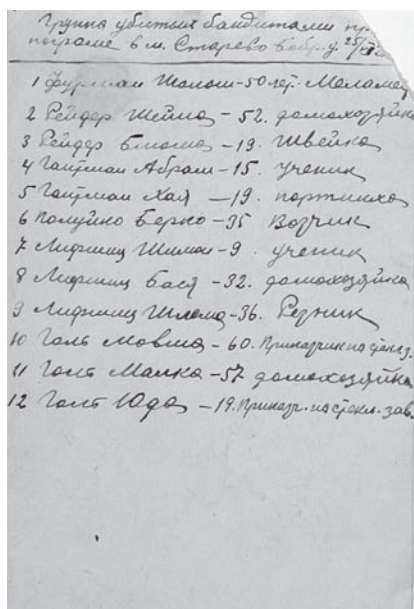 Группа убитых бандитами пр
погроме в м. Старево Бобр. у. 25/
1 Фурман Шолом - 50 лет. Меламе
2 Рейдер Шейма - 52. домохозяйка
3 Рейдер Блюма - 19. Швейка
4 Гантман Абрам - 15. ученик
5 Гантман Хая - 19. портниха
6 Палуйко Берко - 35 Возчик
7 Лифшиц Шиман - 9. ученик
8 Лифшиц Бася - 32. домохозяйка
9 Лифшиц Шлема - 36. Резник
10 Гольт Мовша - 60. Приказчик на стекл. з.
11 Гольт Малка - 57 домохозяйка
12 Гольт Юда - 19. Приказч. на стекл. зав.